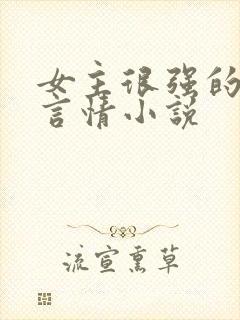 女主很强的
言情小说
流宣熏草